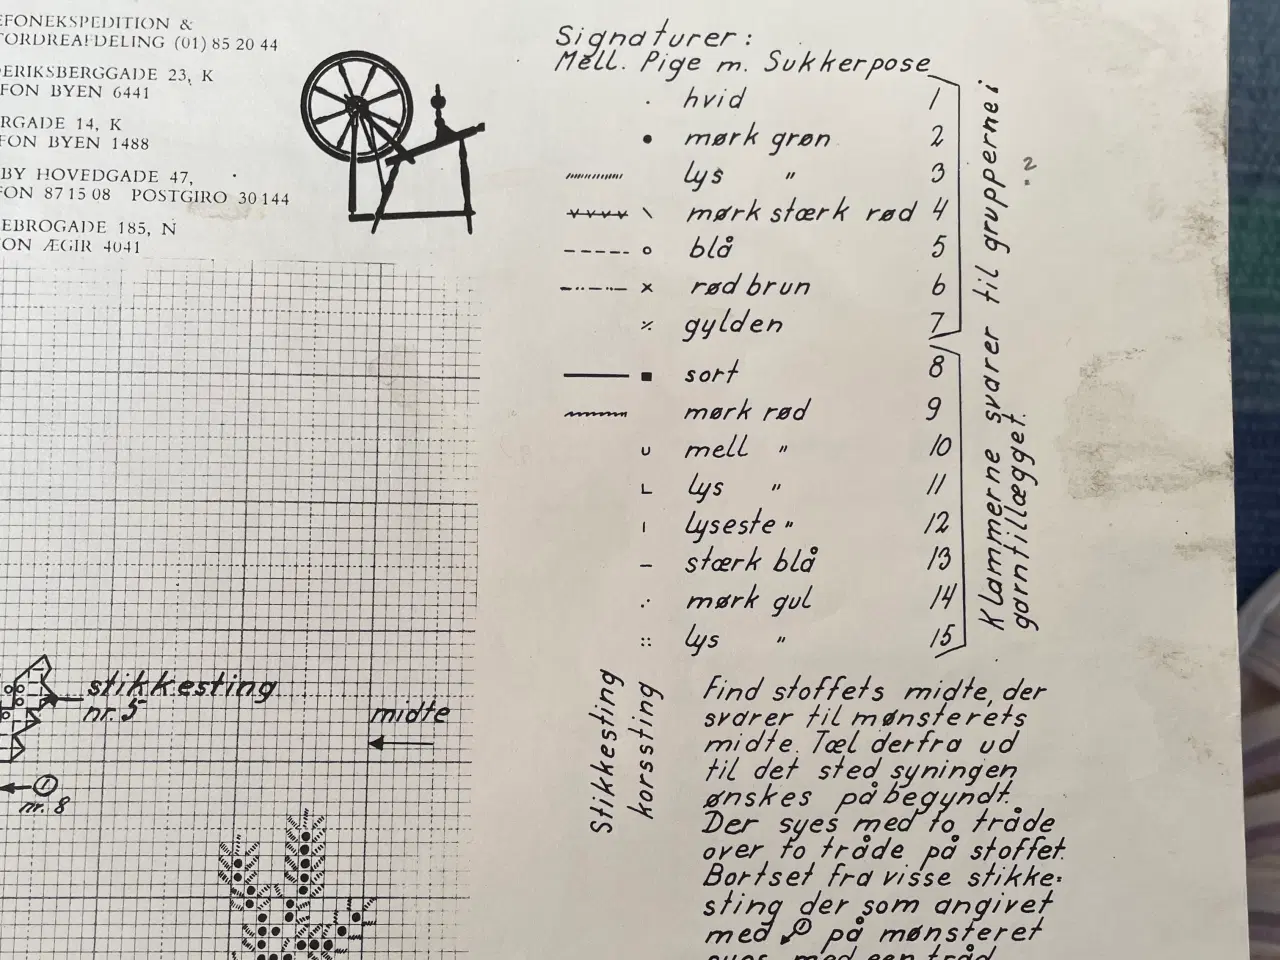 EFONEKSPEDITION &
TORDREAFDELING (01) 85 20 44
ERIKSBERGGADE 23, K
FON BYEN 6441
RGADE 14, K
FON BYEN 1488
BY HOVEDGADE 47,
FON 87 15 08 POSTGIRO 30 144
EBROGADE 185, N
ON ÆGIR 4041
Signaturer:
Mell. Pige m. Sukkerpose
hvid 1
mørk grøn 2
lys " 3
mørk stærk rød 4
blå 5
rød brun 6
gylden 7
sort 8
mørk rød 9
mell " 10
lys " 11
lyseste " 12
stærk blå 13
mørk gul 14
lys " 15
Klammerne svarer til grupperne i
garntillægget.
?
Stikkesting
korssting
stikkesting
nr. 5
midte
1
nr. 8
Find stoffets midte, der
svarer til mønsterets
midte. Tæl derfra ud
til det sted syningen
ønskes påbegyndt.
Der syes med to tråde
over to tråde på stoffet.
Bortset fra visse stikke=
sting der som angivet
med 1 på mønsteret
syes med een tråd